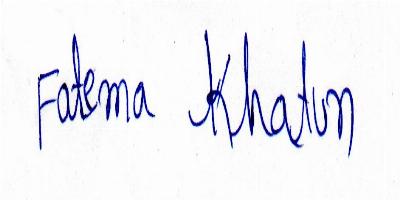 Fatema Khatun